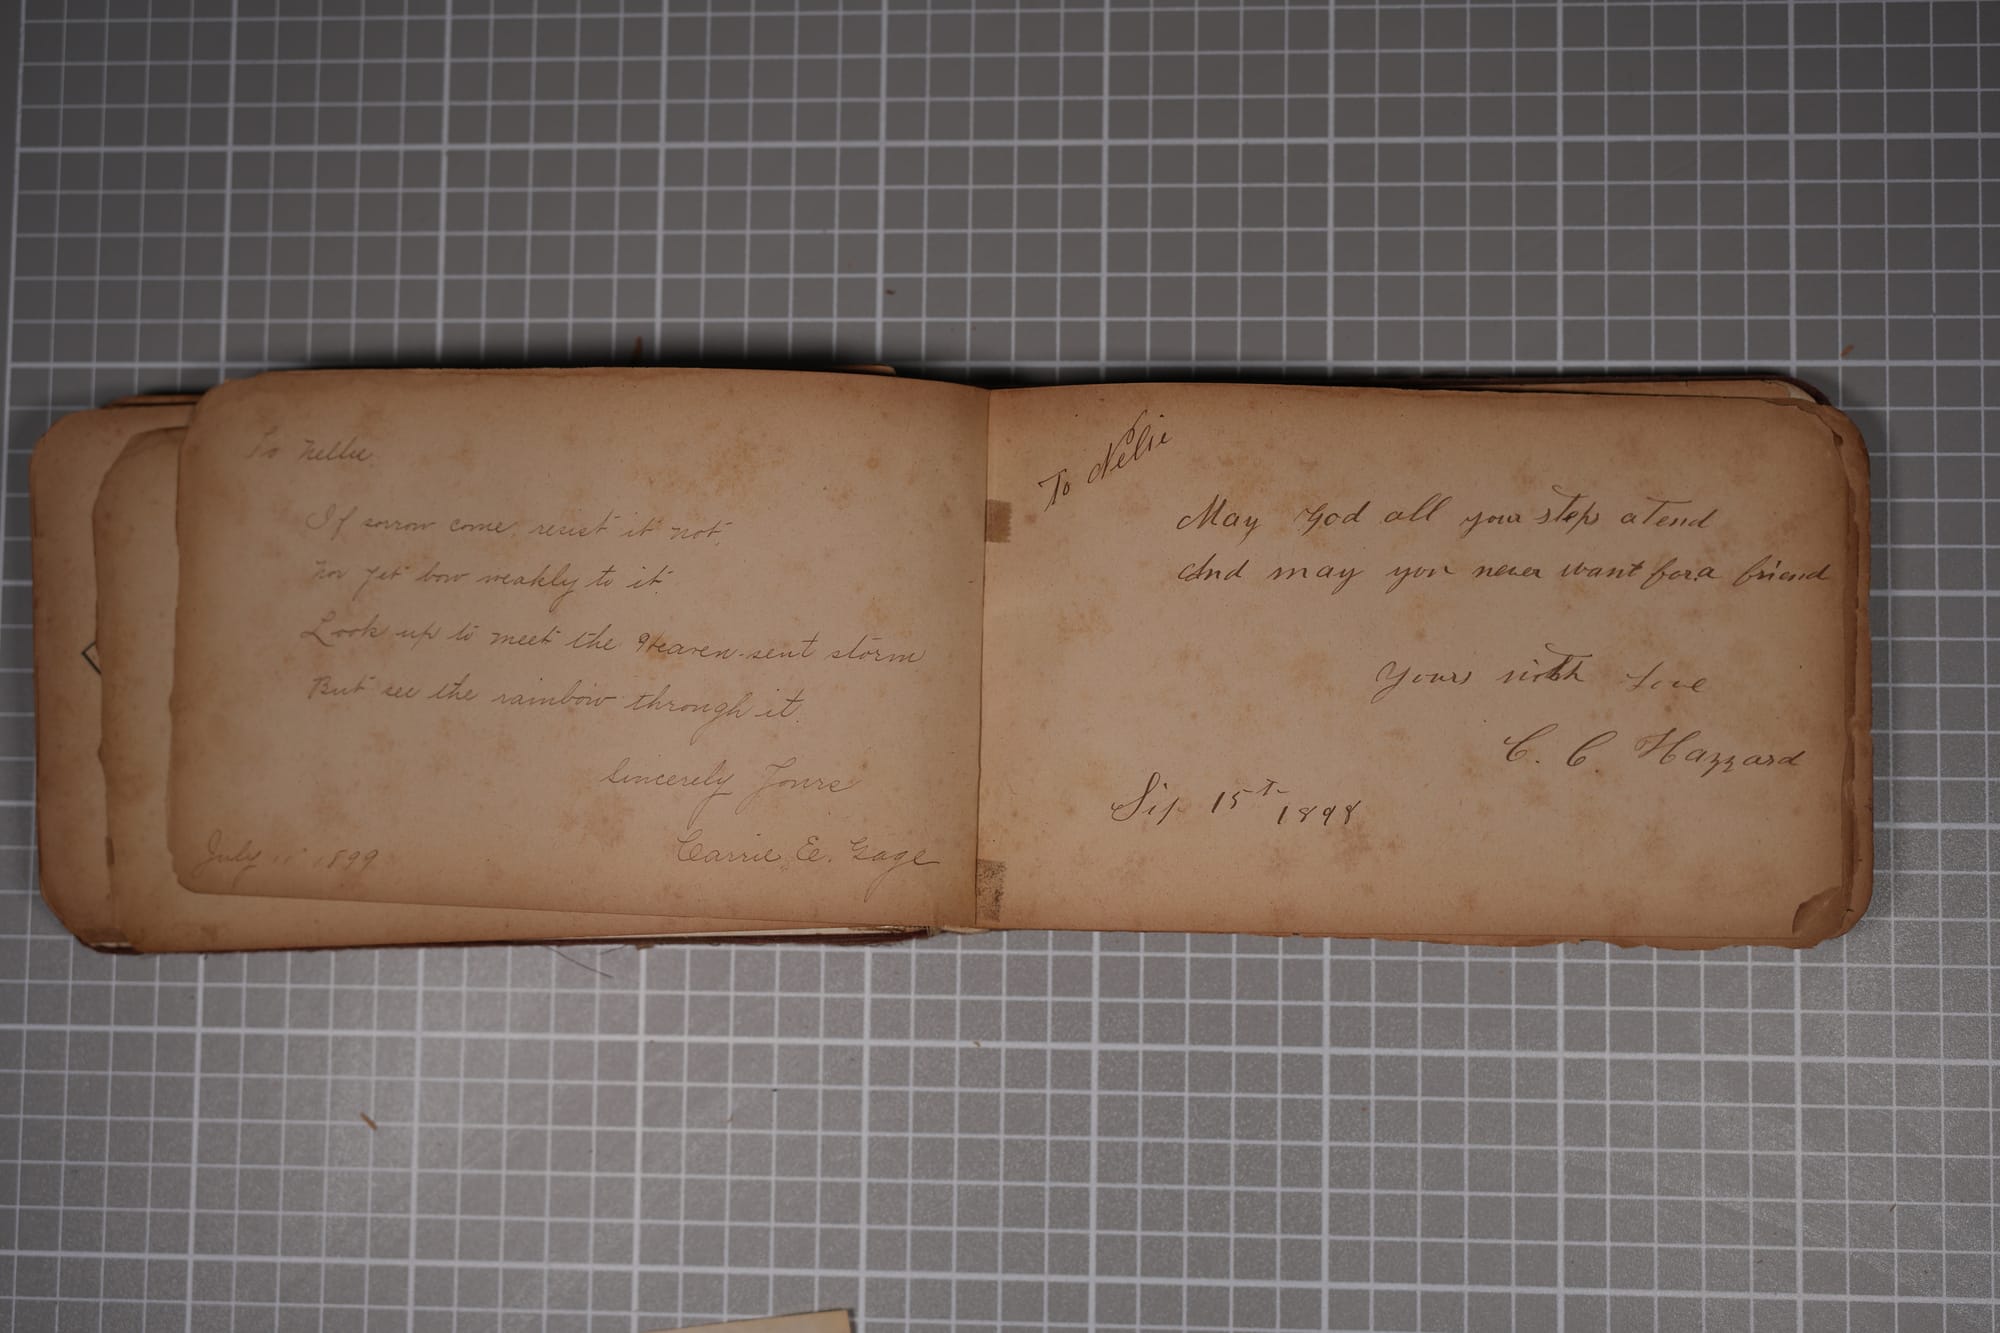 To Nellie
If sorrow come, resist it not,
Nor yet bow weakly to it.
Look up to meet the Heaven-sent storm
But see the rainbow through it.
Sincerely Yours
Carrie E. Gage
July 1899
To Nelie
May God all your steps atend
And may you never want for a friend
Yours with Love
C. C. Hazzard
Sep 15th 1898